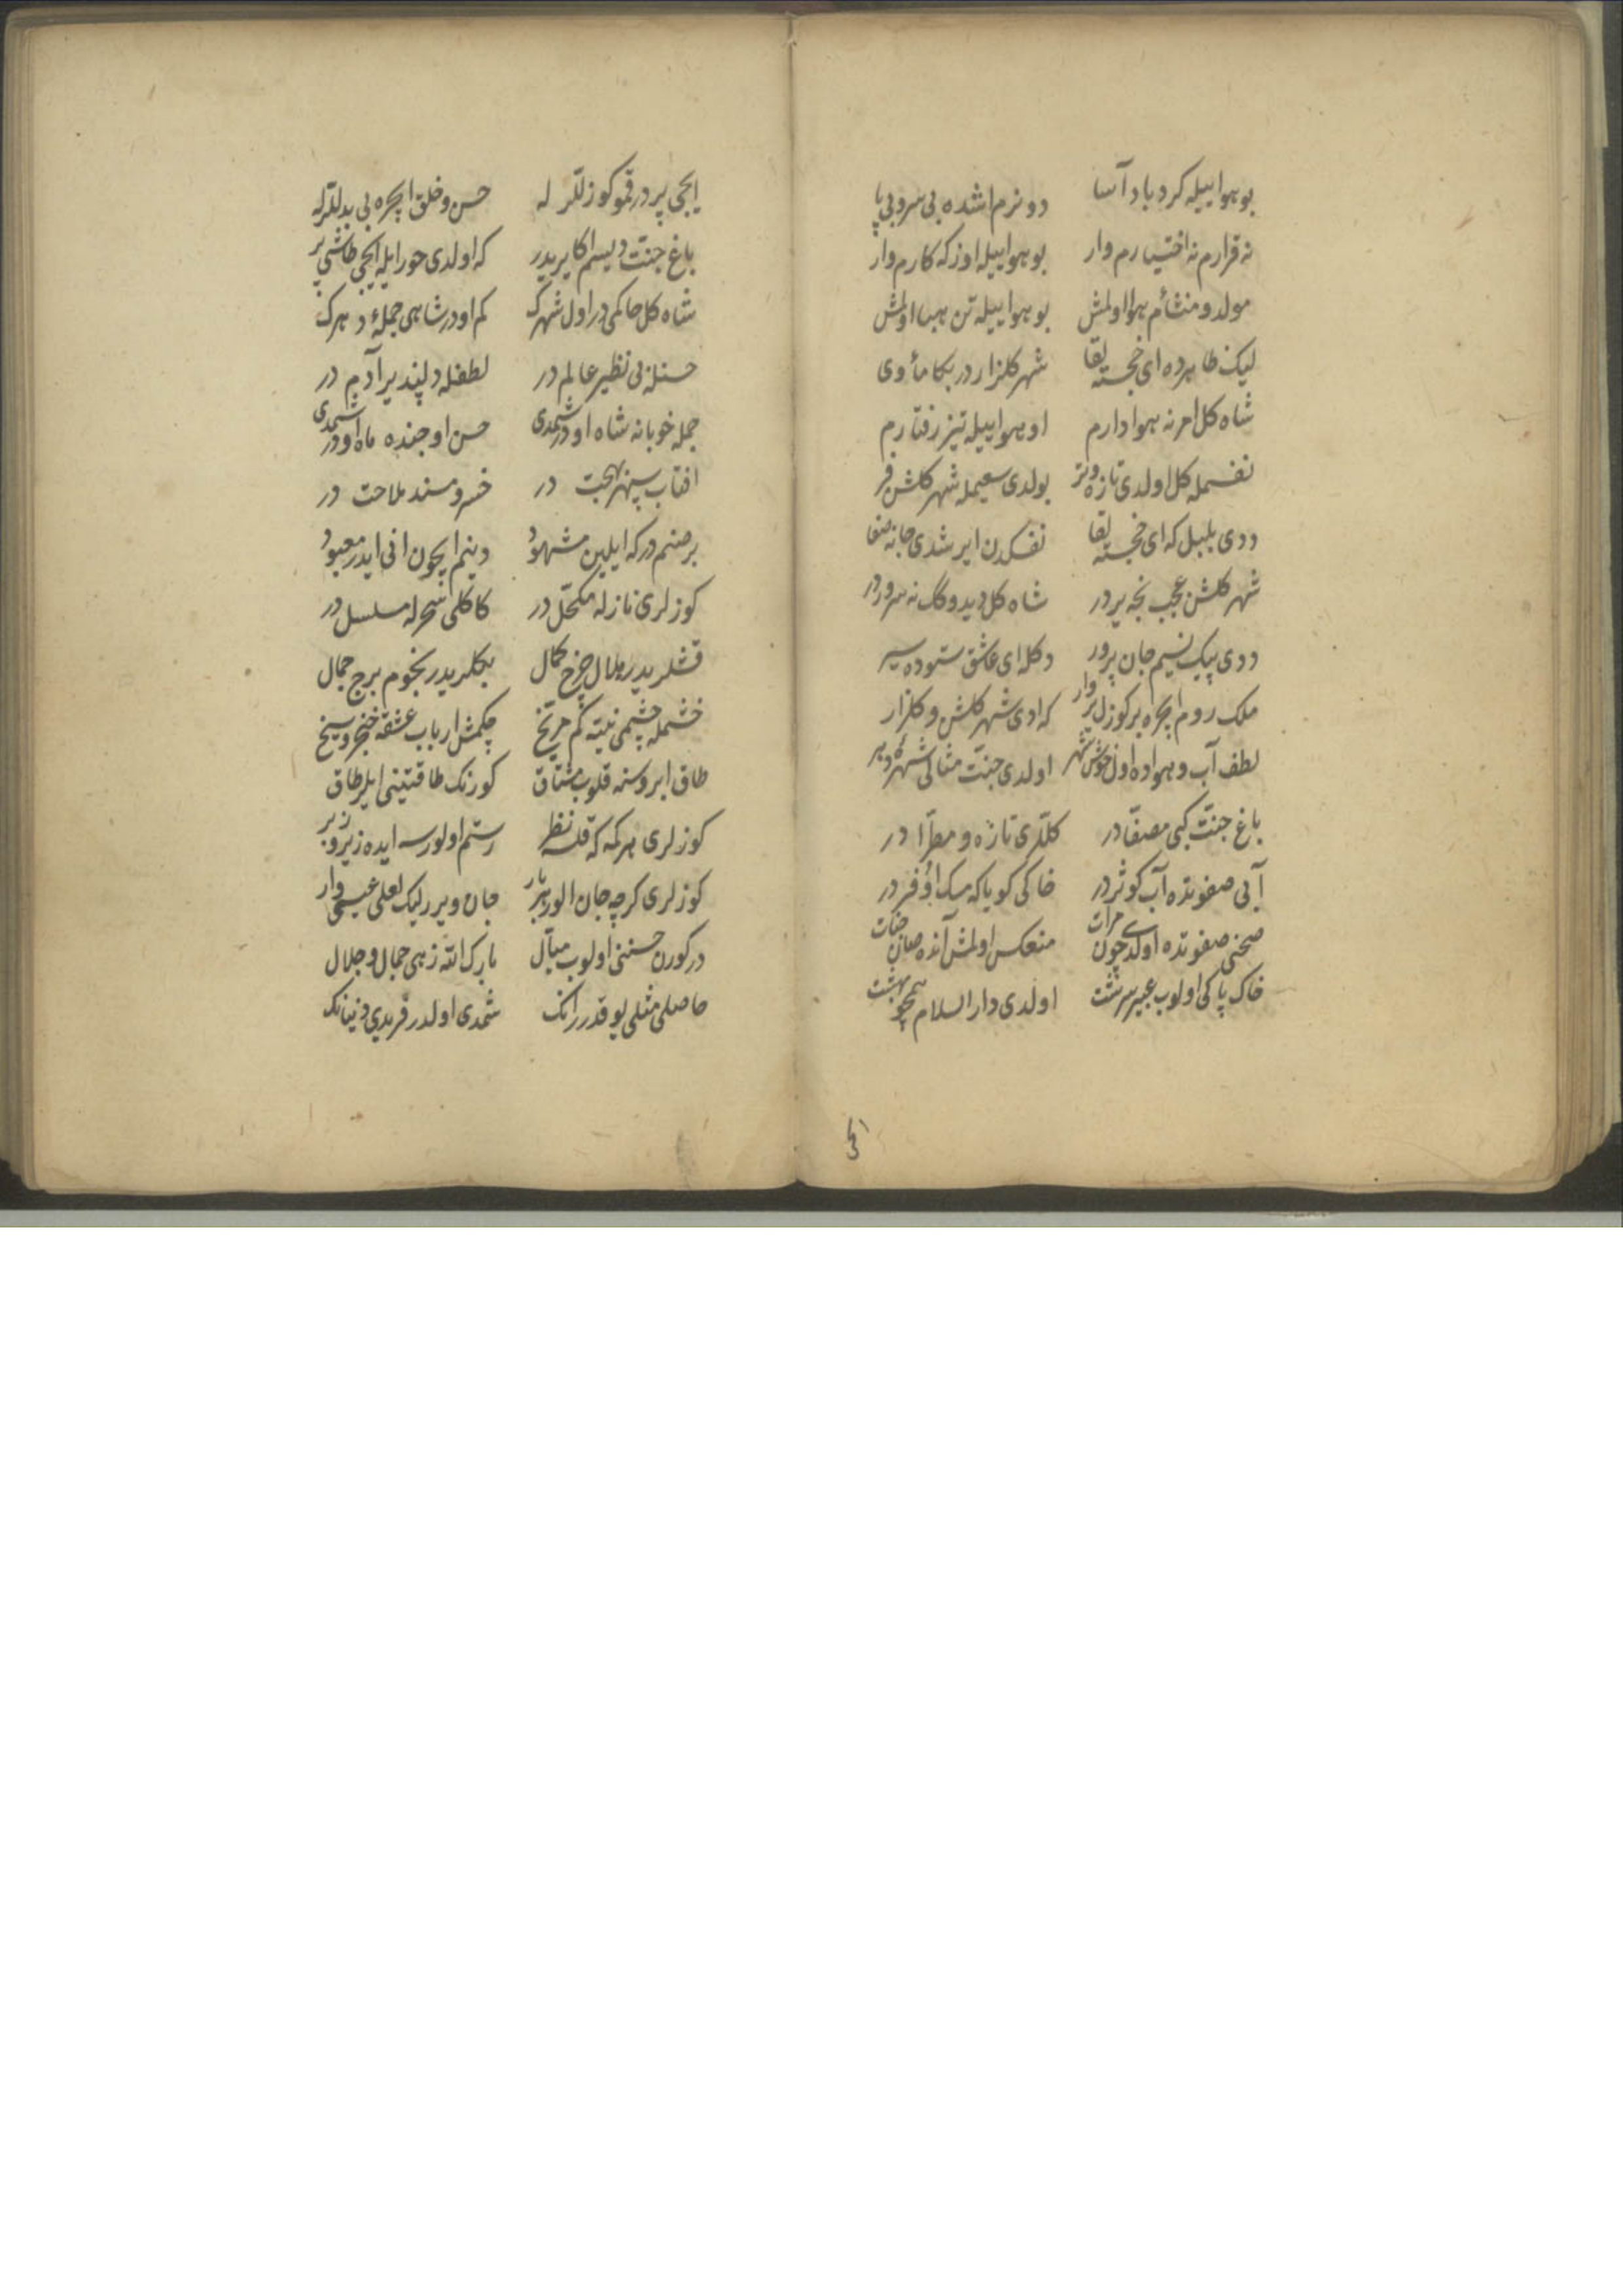 بو هوا ایله کرد باد آسا دونرم اشده بی سر و بی پا
نه قرارم نه اختیارم وار بو هوا ایله اوزکه کارم وار
مولد و منشأم هوا اولمش بو هوا ایله تن هبا اولمش
لیک ظاهرده ای خجسته لقا شهر کلزار در بکا مأوی
شاه کل امرنه هوادارم او هوا ایله تیز رفتارم
نفسمله کل اولدی تازه وتر بولدی سعیمله شهر کلشن فر
ددی بلبل که ای خجسته لقا نفسکدن ایرشدی جانه صفا
شهر کلشن عجب نجه یردر شاه کل دیدوکک نه سروردر
ددی پیک نسیم جان پرور دکله ای عاشق ستوده سیر
ملک روم ایچره بر کوزل یر وار که ادی شهر کلشن و کلزار
لطف آب و هواده اول خوش شهر اولدی جنت مثالی شهرهٔ دهر
باغ جنت کبی مصفادر کللری تازه و مطرا در
آبی صفوتده آب کوثردر خاکی کویا که مسک اذفردر
صحنی صفوتده اولدی چون مرآت منعکس اولمش آنده صان جنات
خاک پاکی اولوب عبیر سرشت اولدی دار السلام همچو بهشت
ایچی
ایچی پر در قمو کوزللر له حسن و خلق ایچره بی بدللرله
باغ جنت دیسم اکا یریدر که اولدی حور ایله ایچی طاشی پر
شاه کل حاکمی در اول شهرک کم اودر شاهی جملهٔ دهرک
حسنله بی نظیر عالم در لطفله دلپذیر آدم در
جمله خوبانه شاه اودر شمدی حسن اوجنده ماه اودر شمدی
افتاب سپهر بهجت در خسرو مسند ملاحت در
بر صنم درکه ایلین مشهود دینم ایچون انی ایدر معبود
کوزلری نازله مکحل در کاکلی سحرله مسلسل در
قشلریدر هلال چرخ کمال بکلریدر نجوم برج جمال
خشمله چشمی نیته کم مریخ چکمش ارباب عشقه خنجر و سیخ
طاق ابروسنه قلوب مشتاق کورنک طاقتینی ایلر طاق
کوزلری هر کمه که قلسه نظر رستم اولورسه ایده زیر و زبر
کوزلری کرچه جان الور هر بار جان ویرر لیک لعلی عیسی وار
در کورن حسننی اولوب میال بارک الله زهی جمال و جلال
حاصلی مثلی یوقدرر انک شمدی اولدر فریدی دنیانک